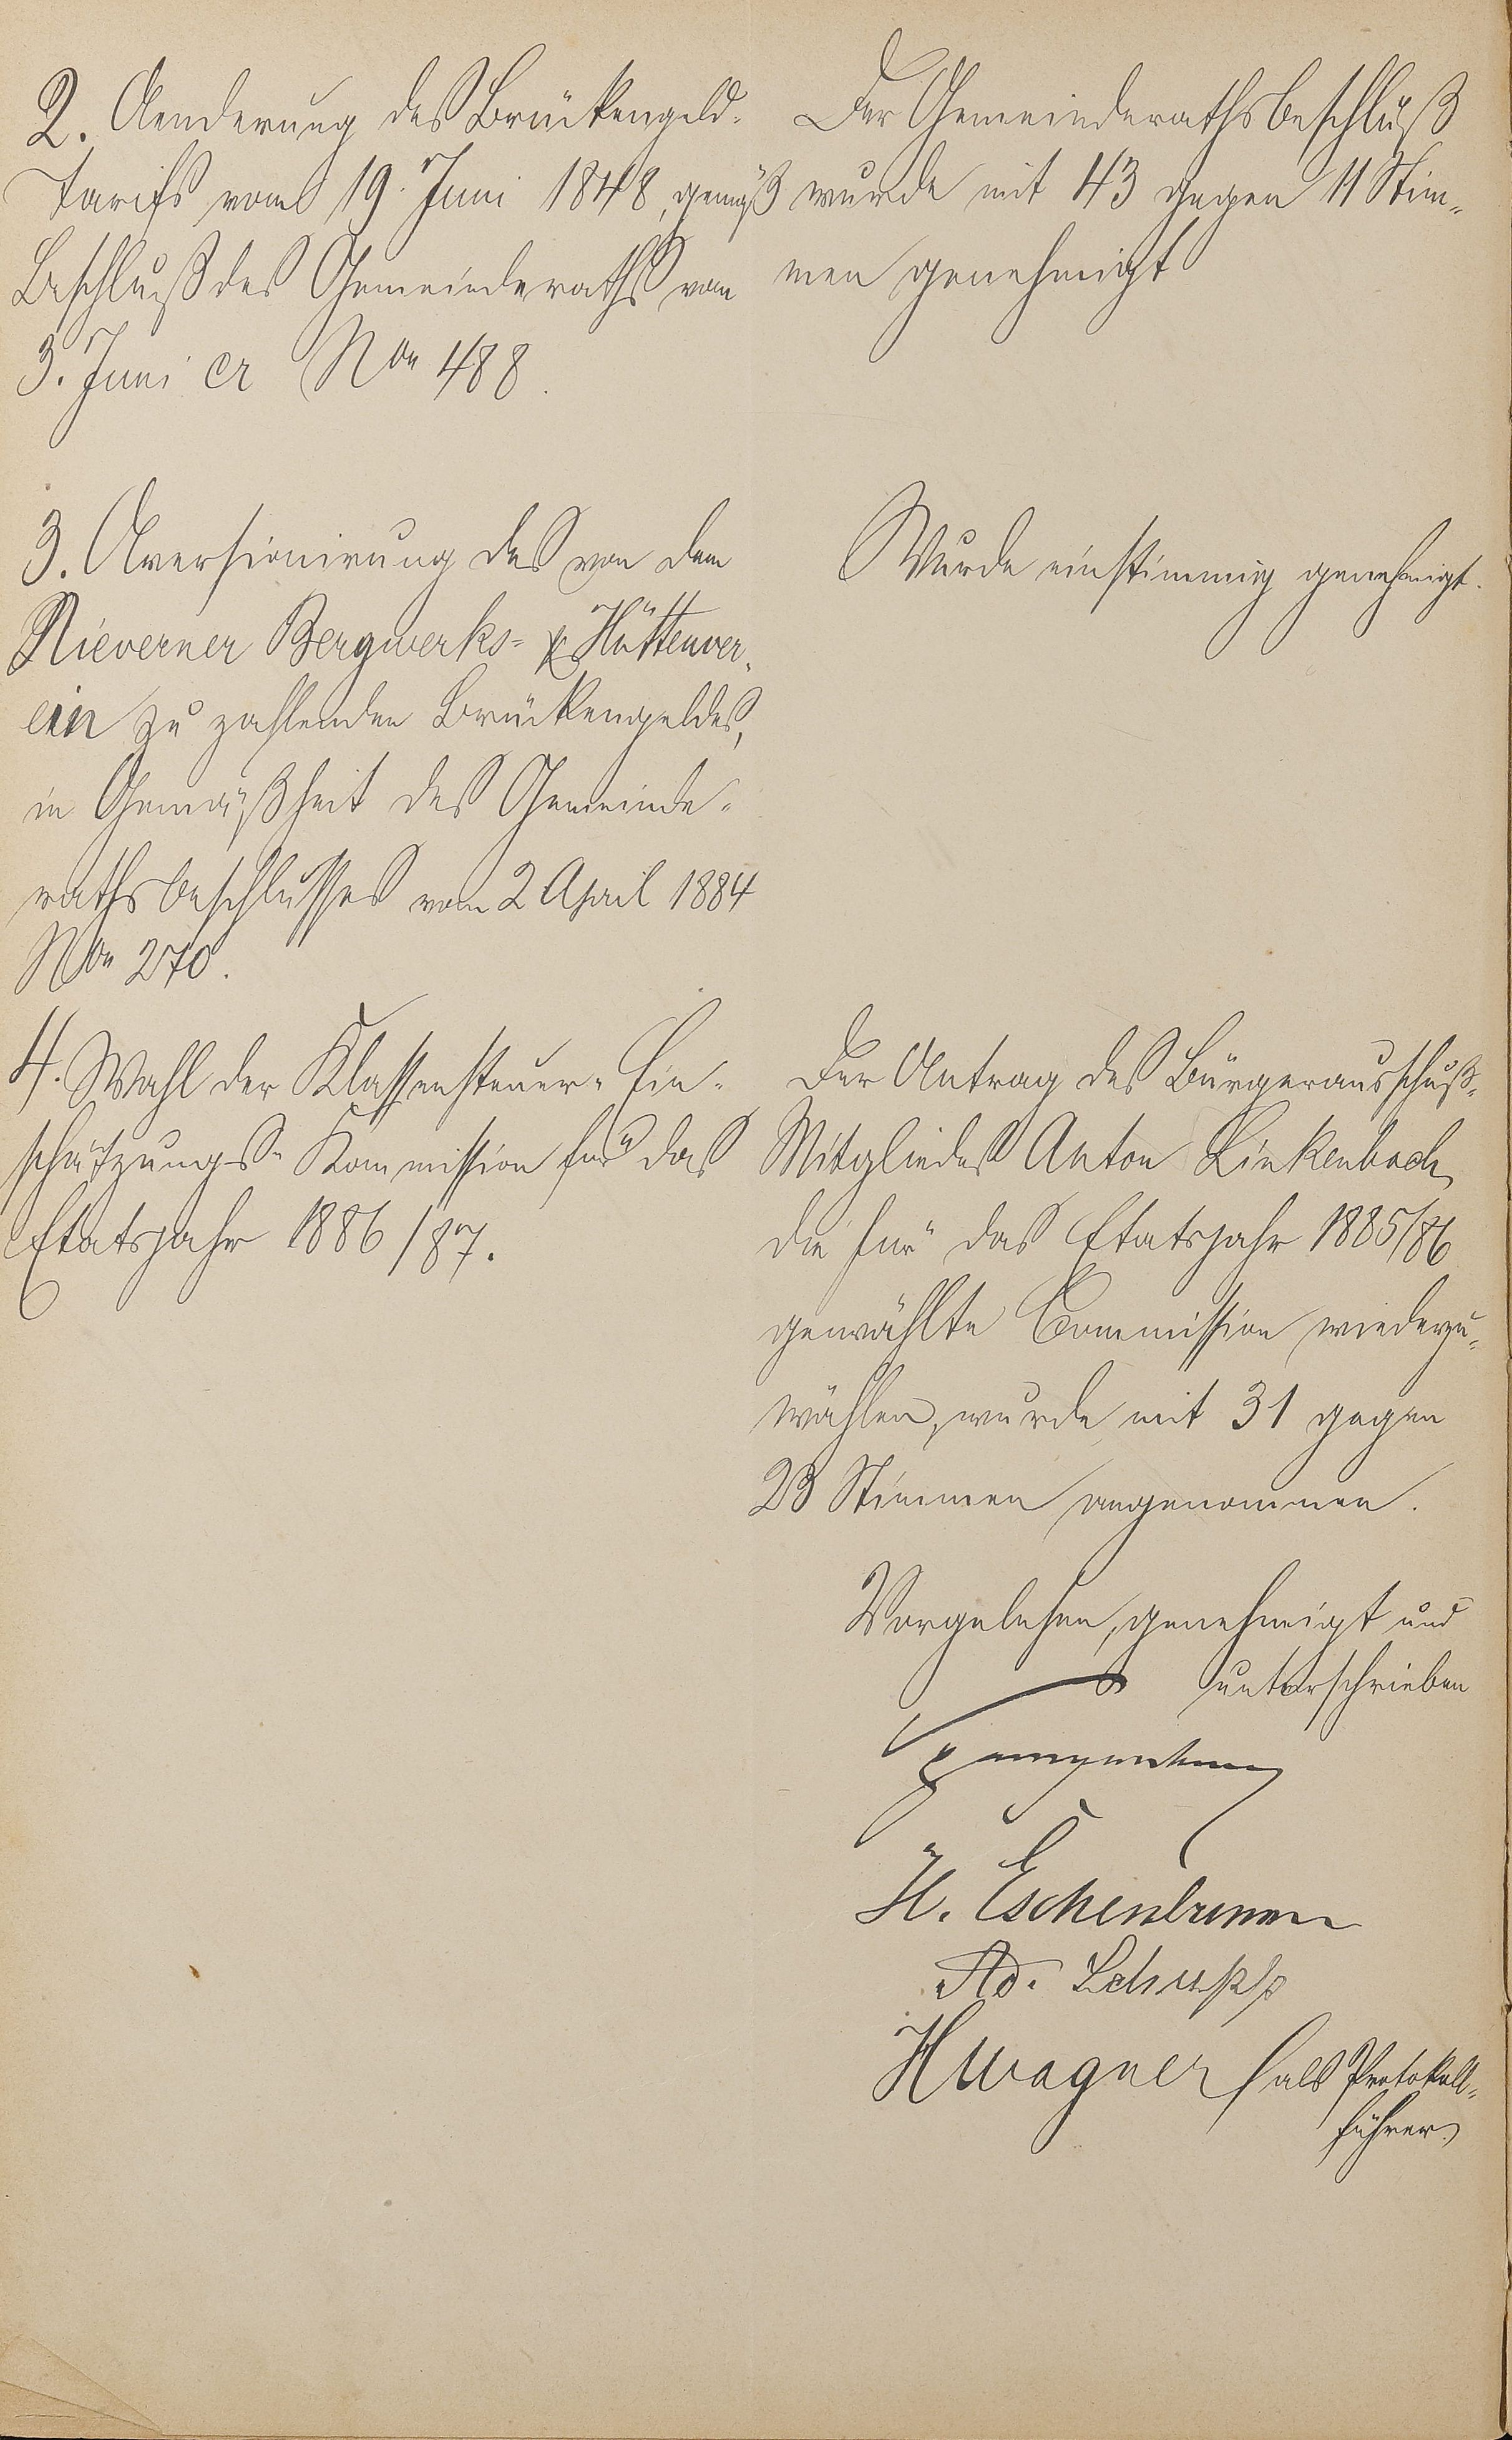 2. Aenderung des Brückengeld-
Tarifs vom 19. Juni 1848, gemäß
Beschluß des Gemeinderaths vom
3. Juni cr Non 488.
Der Gemeinderathsbeschluß
wurde mit 43 gegen 11 Stim-
men genehmigt
3. Aversionirung des von dem
Nieverner Bergwerks- & Hüttenver-
ein zu zahlenden Brückengeldes,
in Gemäßheit des Gemeinde-
rathsbeschlusses vom 2 April 1884
Non 270.
Wurde einstimmig genehmigt.
4. Wahl der Klassensteuer-Ein-
schätzungs-Kommission für das
Etatsjahr 1886/87.
Der Antrag des Bürgerausschuß-
Mitgliedes Anton Linkenbach,
die für das Etatsjahr 1885/86
gewählte Commission wiederzu-
wählen, wurde mit 31 gegen
23 Stimmen angenommen.
Vorgelesen, genehmigt und
unterschrieben
H. Eschenbrenner
Ad. Schupp
HWagner (als Protokoll-
führer)